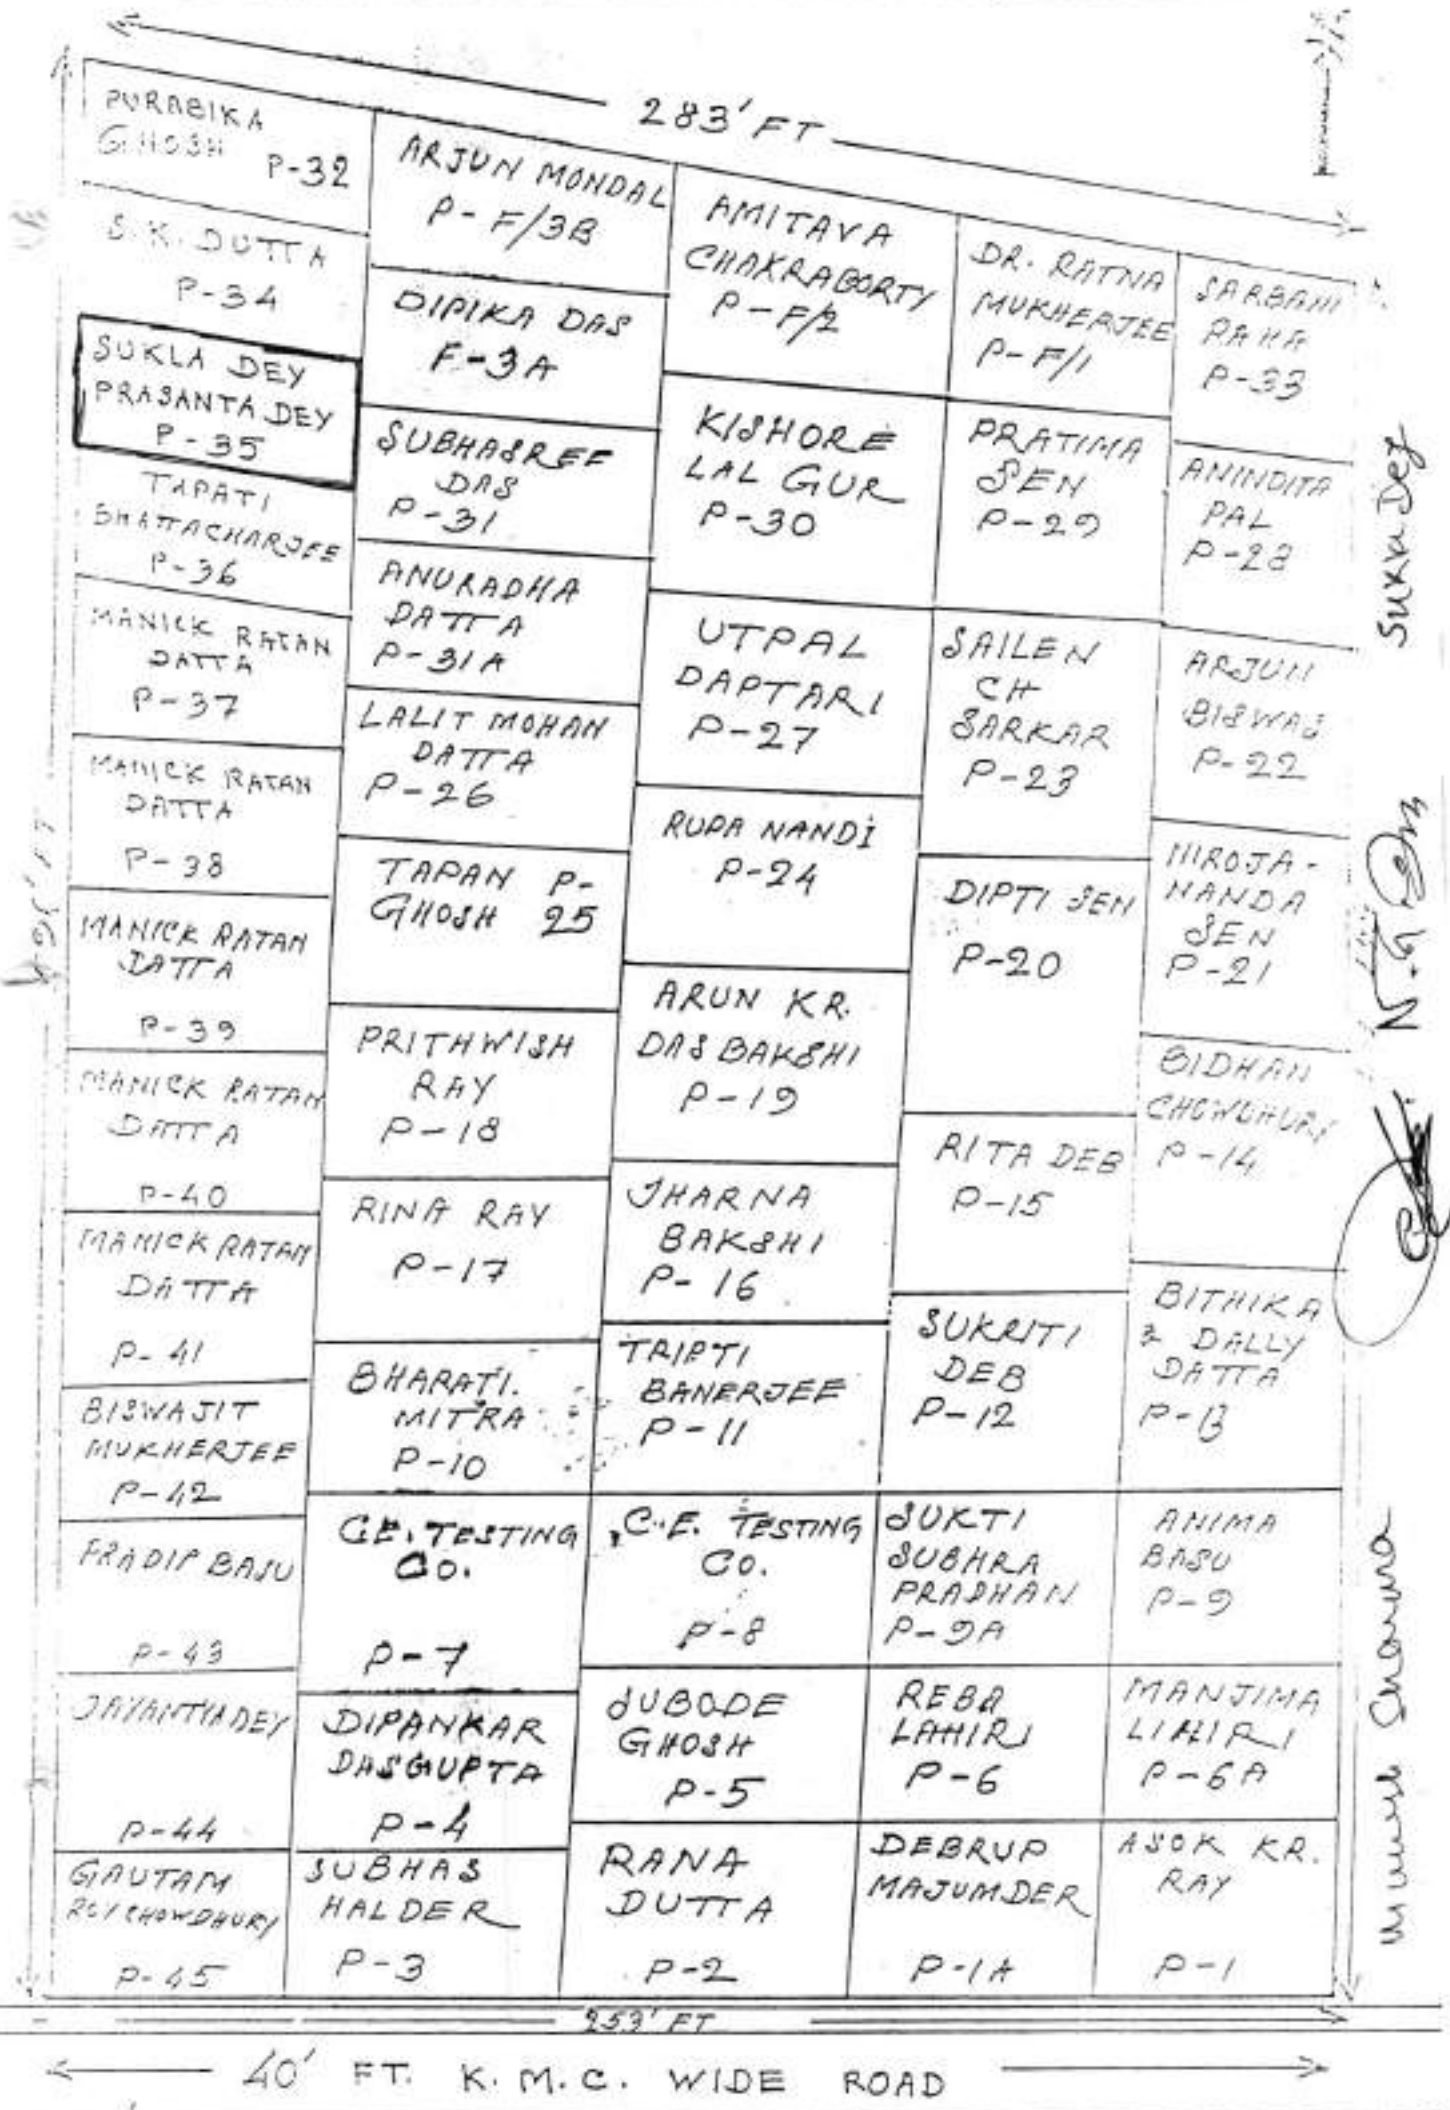 283' FT
PURABIKA
GHOSH P-32
S.K. DUTTA
P-34
SUKLA DEY
PRASANTA DEY
P-35
TAPATI
BHATTACHARJEE
P-36
MANICK RATAN
DATTA
P-37
MANICK RATAN
DATTA
P-38
MANICK RATAN
DATTA
P-39
MANICK RATAN
DATTA
P-40
MANICK RATAN
DATTA
P-41
BISWAJIT
MUKHERJEE
P-42
PRADIP BASU
P-43
JAYANTYA DEY
P-44
GAUTAM
ROY CHOWDHURY
P-45
ARJUN MONDAL
P-F/3B
DIPIKA DAS
F-3A
SUBHASREE
DAS
P-31
ANURADHA
DATTA
P-31A
LALIT MOHAN
DATTA
P-26
TAPAN P-
GHOSH 25
PRITHWISH
RAY
P-18
RINA RAY
P-17
BHARATI.
MITRA
P-10
C.E. TESTING
CO.
P-7
DIPANKAR
DASGUPTA
P-4
SUBHAS
HALDER
P-3
AMITAVA
CHAKRABORTY
P-F/2
KISHORE
LAL GUR
P-30
UTPAL
DAPTARI
P-27
RUPA NANDI
P-24
ARUN KR.
DAS BAKSHI
P-19
JHARNA
BAKSHI
P-16
TRIPTI
BANERJEE
P-11
C.E. TESTING
CO.
P-8
SUBODE
GHOSH
P-5
RANA
DUTTA
P-2
DR. RATNA
MUKHERJEE
P-F/1
PRATIMA
SEN
P-29
SAILEN
CH
SARKAR
P-23
DIPTI SEN
P-20
RITA DEB
P-15
SUKRITI
DEB
P-12
SUKTI
SUBHRA
PRADHAN
P-9A
REBA
LAHIRI
P-6
DEBRUP
MAJUMDER
P-1A
SARBANI
RAHA
P-33
ANINDITA
PAL
P-28
ARJUN
BISWAS
P-22
NIROJA-
NANDA
SEN
P-21
BIDHAN
CHOWDHURY
P-14
BITHIKA
& DALLY
DATTA
P-13
ANIMA
BASU
P-9
MANJIMA
LIHIRI
P-6A
ASOK KR.
RAY
P-1
Sukla Dey
253' FT
40' FT. K.M.C. WIDE ROAD